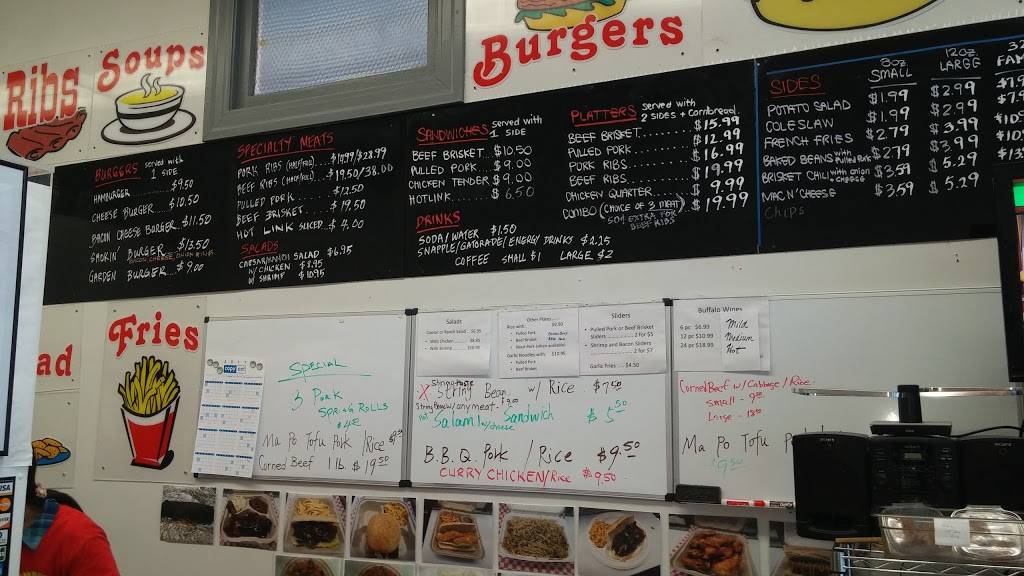 Ribs
Soups
Burgers
BURGERS served with
1 SIDE
HAMBURGER $9.50
CHEESE BURGER $10.50
BACON CHEESE BURGER $11.50
SMOKIN' BURGER $13.50
GARDEN BURGER $9.00
SPECIALTY MEATS
PORK RIBS (HALF/FULL)
BEEF RIBS $19.50/38.00
PULLED PORK $12.50
BEEF BRISKET $19.50
HOT LINK SLICED $4.00
SALADS
CAESAR/RANCH SALAD $6.95
W/ CHICKEN $8.95
W/ SHRIMP $10.95
SANDWICHES served with
1 SIDE
BEEF BRISKET $10.50
PULLED PORK $9.00
CHICKEN TENDER $9.00
HOTLINK $6.50
DRINKS
SODA/WATER $1.50
SNAPPLE/GATORADE/ENERGY DRINKS $2.25
COFFEE SMALL $1 LARGE $2
PLATTERS served with
2 SIDES + Cornbread
BEEF BRISKET $15.99
PULLED PORK $12.99
PORK RIBS $16.99
BEEF RIBS $19.99
CHICKEN QUARTER $9.99
COMBO (CHOICE OF 3 MEAT) $19.99
EXTRA FOR
BEEF RIBS
SIDES
8oz
SMALL
12oz
LARGE
32
FAM
POTATO SALAD $1.99 $2.99
COLESLAW $1.99 $2.99
FRENCH FRIES $2.79 $3.99
BAKED BEANS with Pulled Pork $2.79 $3.99
BRISKET CHILI with onion & CHEESE $3.59 $5.29
MAC N' CHEESE $3.59 $5.29
Chips
ad
Fries
SPECIAL
3 PORK
SPRING ROLLS
Ma Po Tofu Pork/Rice
Corned Beef 1 lb. $19.50
Salads
Caesar or Ranch Salad
With Chicken
With Shrimp
Other Plates
Rice with: $9.50
Pulled Pork
Beef Brisket
Garlic Noodles with $10.95
Pulled Pork
Beef Brisket
Sliders
Pulled Pork or Beef Brisket
Sliders 2 for $5
Shrimp and Bacon Sliders
2 for $7
Garlic Fries $4.50
Buffalo Wings
6 pc $6.99
12 pc $10.99
24 pc $18.99
Mild
Medium
Hot
X String Bean w/ Rice $7.50
String Bean w/ any meat
Salami w/ cheese Sandwich $5.50
B.B.Q Pork /Rice $9.50
CURRY CHICKEN/Rice $9.50
Corned Beef w/ Cabbage/Rice
Small
Large
Ma Po Tofu
VISA
SONY
SONY